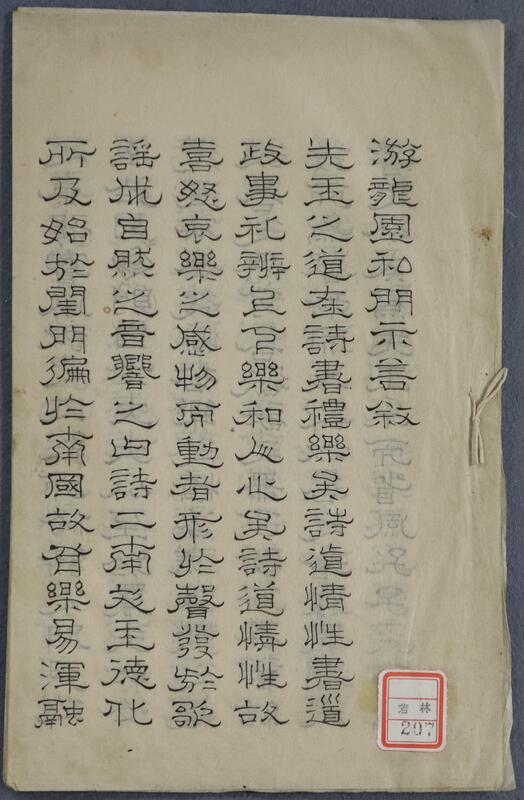 游龍園和門示言叙
先王之道在詩書禮樂矣詩道情性書道
政事礼辨上下樂和人心矣詩道情性故
喜怒哀樂之感物而動者形於聲發於歌
謠成自然之音響之曰詩二南文王德化
所及始於閨門徧於南國故有樂易渾融
若林
207